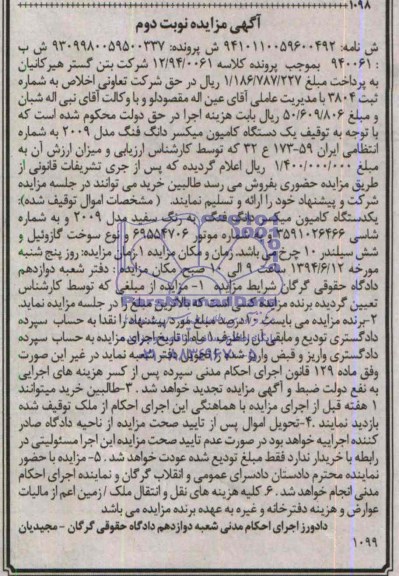 ۱۰۹۸
آگهی مزایده نوبت دوم
ش نامه: ۹۴۱۰۱۱۰۰۵۹۶۰۰۴۹۲ ش پرونده: ۹۳۰۹۹۸۰۰۵۹۵۰۰۳۳۷ ش ب
: ۹۴۰۰۶۱ بموجب پرونده کلاسه ۱۲/۹۴/۰۰۶۱ شرکت بتن گستر هیرکانیان
به پرداخت مبلغ ۱/۱۸۶/۷۸۷/۲۲۷ ریال در حق شرکت تعاونی اخلاص به شماره
ثبت ۳۸۰۴ با مدیریت عاملی آقای عین اله مقصودلو و با وکالت آقای نبی اله شبان
و مبلغ ۵۰/۶۰۹/۸۰۶ ریال بابت هزینه اجرا در حق دولت محکوم شده است که
با توجه به توقیف یک دستگاه کامیون میکسر دانگ فنگ مدل ۲۰۰۹ به شماره
انتظامی ایران ۵۹-۱۷۳ ع ۳۲ که توسط کارشناس ارزیابی و میزان ارزش آن به
مبلغ ۱/۴۰۰/۰۰۰/۰۰۰ ریال اعلام گردیده که پس از جری تشریفات قانونی از
طریق مزایده حضوری بفروش می رسد طالبین خرید می توانند در جلسه مزایده
شرکت و پیشنهاد خود را ارائه و تسلیم نمایند. ( مشخصات اموال توقیف شده):
یکدستگاه کامیون میکسر دانگ فنگ به رنگ سفید مدل ۲۰۰۹ و به شماره
شاسی ۳۵۹۱۰۲۶۴۶۶ و شماره موتور ۶۹۵۵۴۷۰۶ و نوع سوخت گازوئیل و
شش سیلندر ۱۰ چرخ می باشد. زمان و مکان مزایده ۱.زمان مزایده: روز پنج شنبه
مورخه ۱۳۹۴/۶/۱۲ ساعت ۹ الی ۱۰ صبح مکان مزایده : دفتر شعبه دوازدهم
دادگاه حقوقی گرگان شرایط مزایده ۱- مزایده از مبلغی که توسط کارشناس
تعیین گردیده برنده مزایده کسی است که بالاترین مبلغ را در جلسه مزایده نماید.
۲-برنده مزایده می بایست ۱۰درصد مبلغ مورد پیشنهاد را نقدا به حساب سپرده
دادگستری تودیع و مابقی آن را ظرف ۱ ماه از تاریخ اجرای مزایده به حساب سپرده
دادگستری واریز و قبض واریز شده را تحویل دفتر شعبه نماید در غیر این صورت
وفق ماده ۱۲۹ قانون اجرای احکام مدنی سپرده پس از کسر هزینه های اجرایی
به نفع دولت ضبط و آگهی مزایده تجدید خواهد شد. ۳-طالبین خرید میتوانند
۱ هفته قبل از اجرای مزایده با هماهنگی این اجرای احکام از ملک توقیف شده
بازدید نمایند .۴-تحویل اموال پس از تایید صحت مزایده از ناحیه دادگاه صادر
کننده اجراییه خواهد بود در صورت عدم تایید صحت مزایده این اجرا مسئولیتی در
رابطه با خریدار ندارد فقط مبلغ تودیع شده عودت خواهد شد. ۵- مزایده با حضور
نماینده محترم دادستان دادسرای عمومی و انقلاب گرگان و نماینده اجرای احکام
مدنی انجام خواهد شد. ۶. کلیه هزینه های نقل و انتقال ملک / زمین اعم از مالیات
عوارض و هزینه دفترخانه و غیره به عهده برنده مزایده می باشد
دادورز اجرای احکام مدنی شعبه دوازدهم دادگاه حقوقی گرگان - مجیدیان
۱۰۹۹